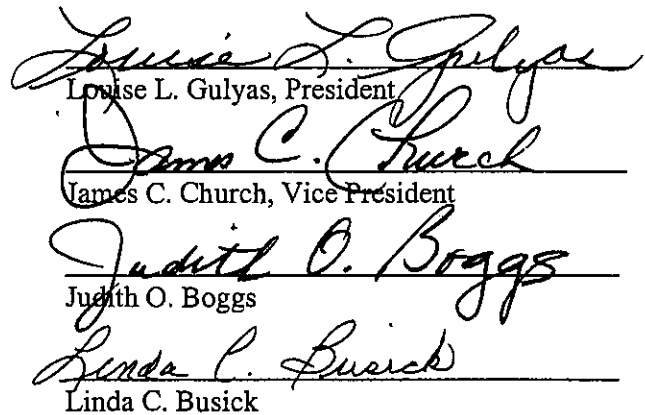 Louise L. Gulyas
Louise L. Gulyas, President
James C. Church
James C. Church, Vice President
Judith O. Boggs
Judith O. Boggs
Linda C. Busick
Linda C. Busick